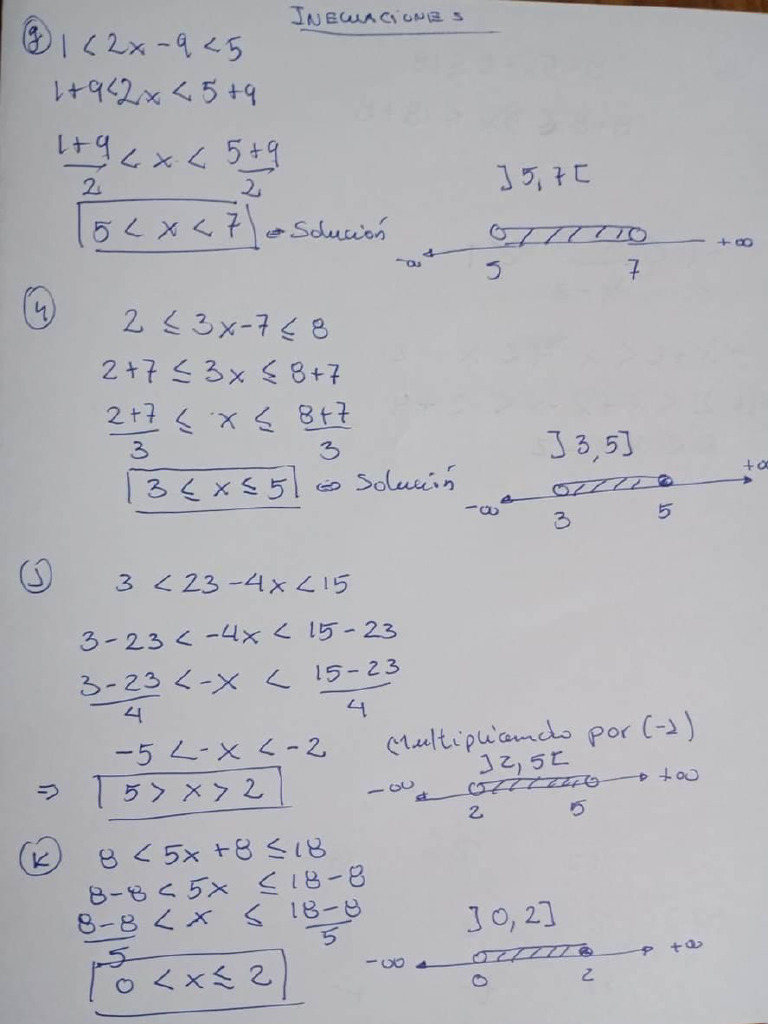 INECUACIONES
g 1 < 2x - 9 < 5
1+9 < 2x < 5+9
1+9/2 < x < 5+9/2
]5,7[
5 < x < 7 Solución
-∞ 5 7 +∞
2 ≤ 3x-7 ≤ 8
2+7 ≤ 3x ≤ 8+7
2+7/3 ≤ x ≤ 8+7/3
]3,5]
3 ≤ x ≤ 5 Solución
-∞ 3 5 +∞
j 3 < 23 - 4x < 15
3-23 < -4x < 15-23
3-23/4 < -x < 15-23/4
-5 < -x < -2 Multiplicando por
⇒ 5 > x > 2
]2,5[
-∞ 2 5 +∞
k 8 < 5x + 8 ≤ 18
8-8 < 5x ≤ 18-8
8-8/5 < x ≤ 18-8/5
]0,2]
0 < x ≤ 2
-∞ 0 2 +∞